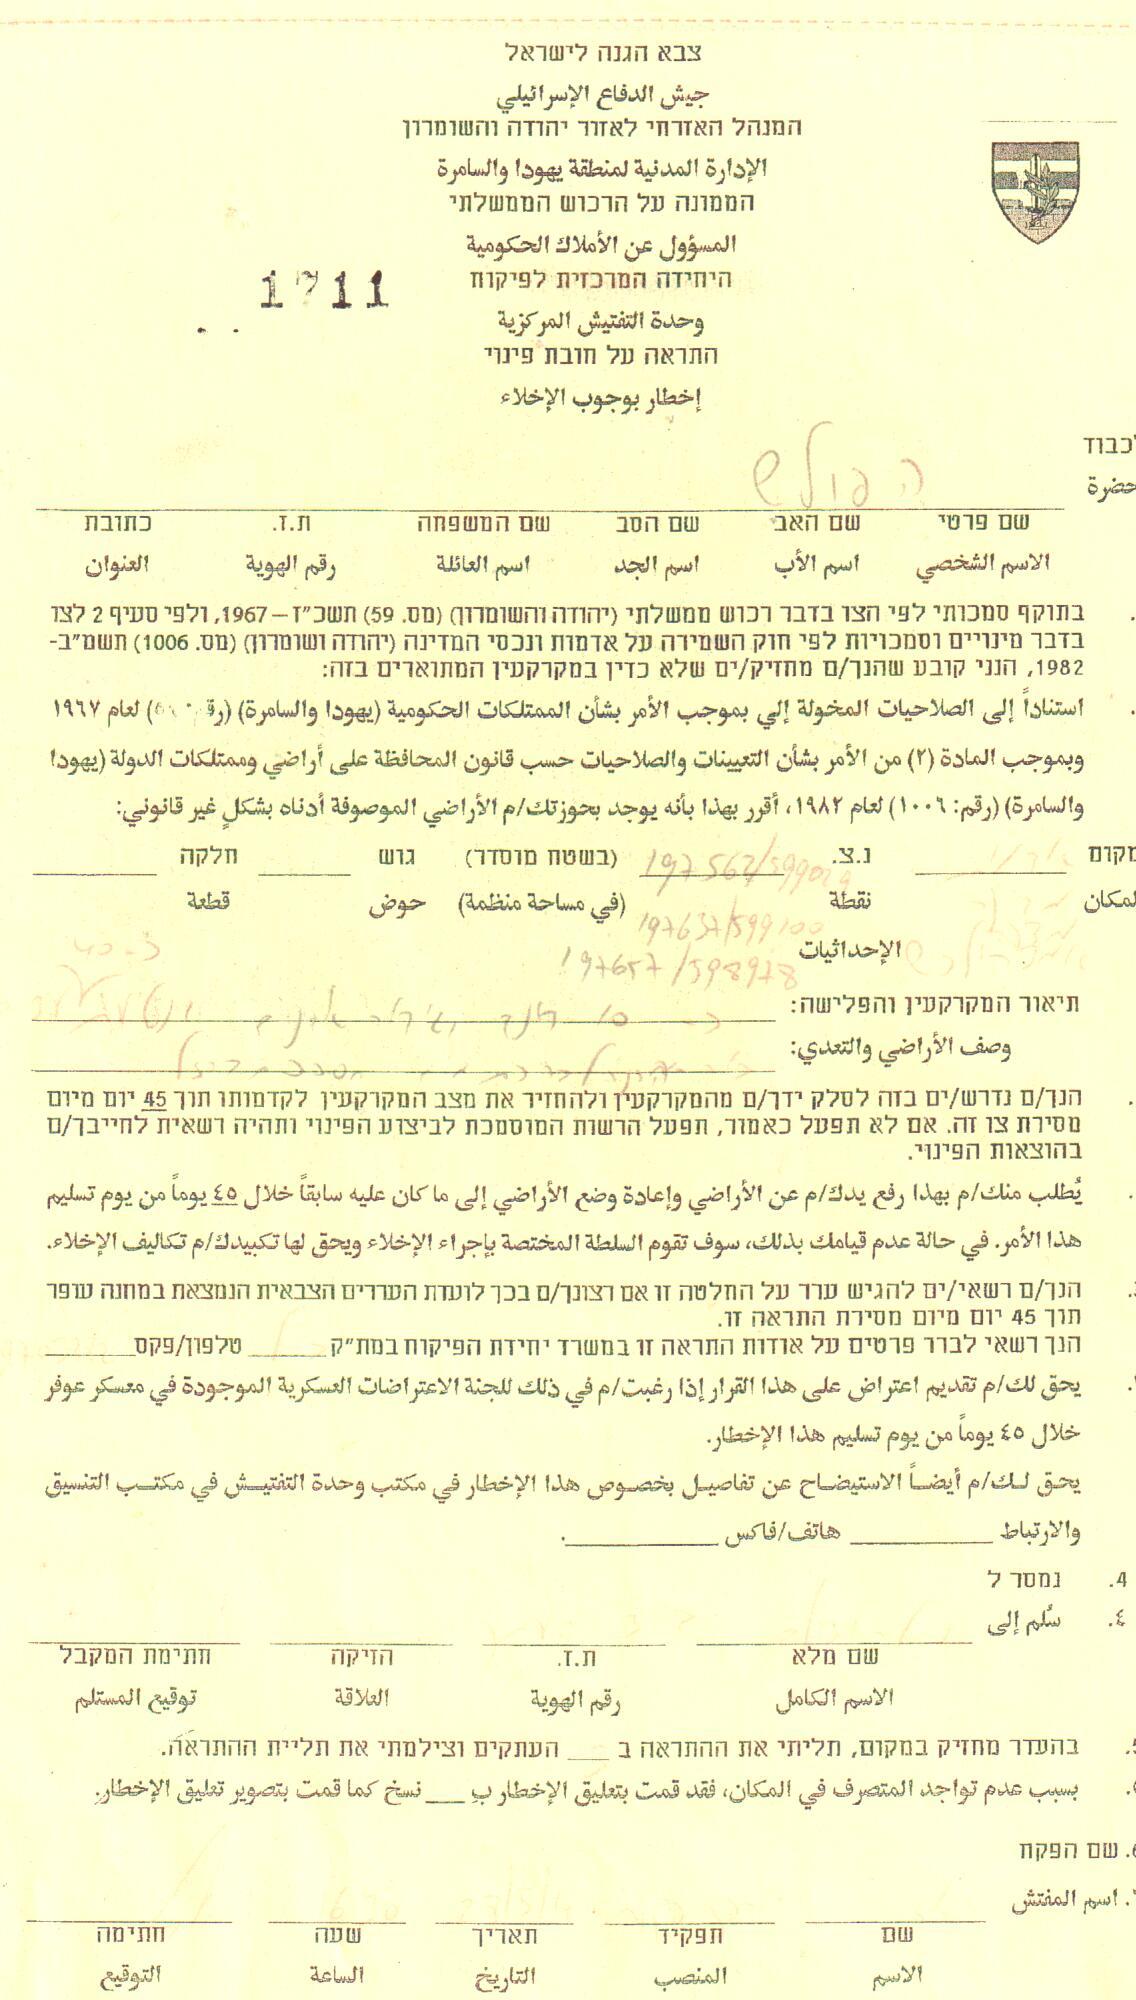 צבא הגנה לישראל
جيش الدفاع الإسرائيلي
המנהל האזרחי לאזור יהודה והשומרון
الإدارة المدنية لمنطقة يهودا والسامرة
הממונה על הרכוש הממשלתי
المسؤول عن الأملاك الحكومية
היחידה המרכזית לפיקוח
1711
وحدة التفتيش المركزية
התראה על חובת פינוי
إخطار بوجوب الإخلاء
לכבוד
حضرة
הפולש
שם פרטי שם האב שם הסב שם המשפחה ת.ז. כתובת
الاسم الشخصي اسم الأب اسم الجد اسم العائلة رقم الهوية العنوان
בתוקף סמכותי לפי הצו בדבר רכוש ממשלתי (יהודה והשומרון) (מס. 59) תשכ"ז–1967, ולפי סעיף 2 לצו
בדבר מינויים וסמכויות לפי חוק השמירה על אדמות ונכסי המדינה (יהודה ושומרון) (מס. 1006) תשמ"ב-
1982, הנני קובע שהנך/ם מחזיק/ים שלא כדין במקרקעין המתוארים בזה:
استناداً إلى الصلاحيات المخولة إلي بموجب الأمر بشأن الممتلكات الحكومية (يهودا والسامرة) لعام ١٩٦٧
وبموجب المادة (٢) من الأمر بشأن التعيينات والصلاحيات حسب قانون المحافظة على أراضي وممتلكات الدولة (يهودا
والسامرة) (رقم: ١٠٠٦) لعام ١٩٨٢، أقرر بهذا بأنه يوجد بحوزتك/م الأراضي الموصوفة أدناه بشكلٍ غير قانوني:
מקום נ.צ. 197562/599029 (בשטח מוסדר) גוש חלקה
المكان نقطة (في مساحة منظمة) حوض قطعة
197637/599100
الإحداثيات
197657/598978
תיאור המקרקעין והפלישה:
وصف الأراضي والتعدي:
הנך/ם נדרש/ים בזה לסלק ידך/ם מהמקרקעין ולהחזיר את מצב המקרקעין לקדמותו תוך 45 יום מיום
מסירת צו זה. אם לא תפעל כאמור, תפעל הרשות המוסמכת לביצוע הפינוי ותהיה רשאית לחייבך/ם
בהוצאות הפינוי.
يُطلب منك/م بهذا رفع يدك/م عن الأراضي وإعادة وضع الأراضي إلى ما كان عليه سابقاً خلال ٤٥ يوماً من يوم تسليم
هذا الأمر. في حالة عدم قيامك بذلك، سوف تقوم السلطة المختصة بإجراء الإخلاء ويحق لها تكبيدك/م تكاليف الإخلاء.
הנך/ם רשאי/ים להגיש ערר על החלטה זו אם רצונך/ם בכך לועדת העררים הצבאית הנמצאת במחנה עופר
תוך 45 יום מיום מסירת התראה זו.
הנך רשאי לברר פרטים על אודות התראה זו במשרד יחידת הפיקוח במת"ק ______ טלפון/פקס______
يحق لك/م تقديم اعتراض على هذا القرار إذا رغبت/م في ذلك للجنة الاعتراضات العسكرية الموجودة في معسكر عوفر
خلال ٤٥ يوماً من يوم تسليم هذا الإخطار.
يحق لك/م أيضاً الاستيضاح عن تفاصيل بخصوص هذا الإخطار في مكتب وحدة التفتيش في مكتب التنسيق
والارتباط ______ هاتف/فاكس ______.
4. נמסר ל
٤. سُلم إلى
שם מלא ת.ז. הזיקה חתימת המקבל
الاسم الكامل رقم الهوية العلاقة توقيع المستلم
בהעדר מחזיק במקום, תליתי את ההתראה ב ___ העתקים וצילמתי את תליית ההתראה.
بسبب عدم تواجد المتصرف في المكان، فقد قمت بتعليق الإخطار بـ ___ نسخ كما قمت بتصوير تعليق الإخطار.
6. שם הפקח
اسم المفتش
שם תפקיד תאריך שעה חתימה
الاسم المنصب التاريخ الساعة التوقيع